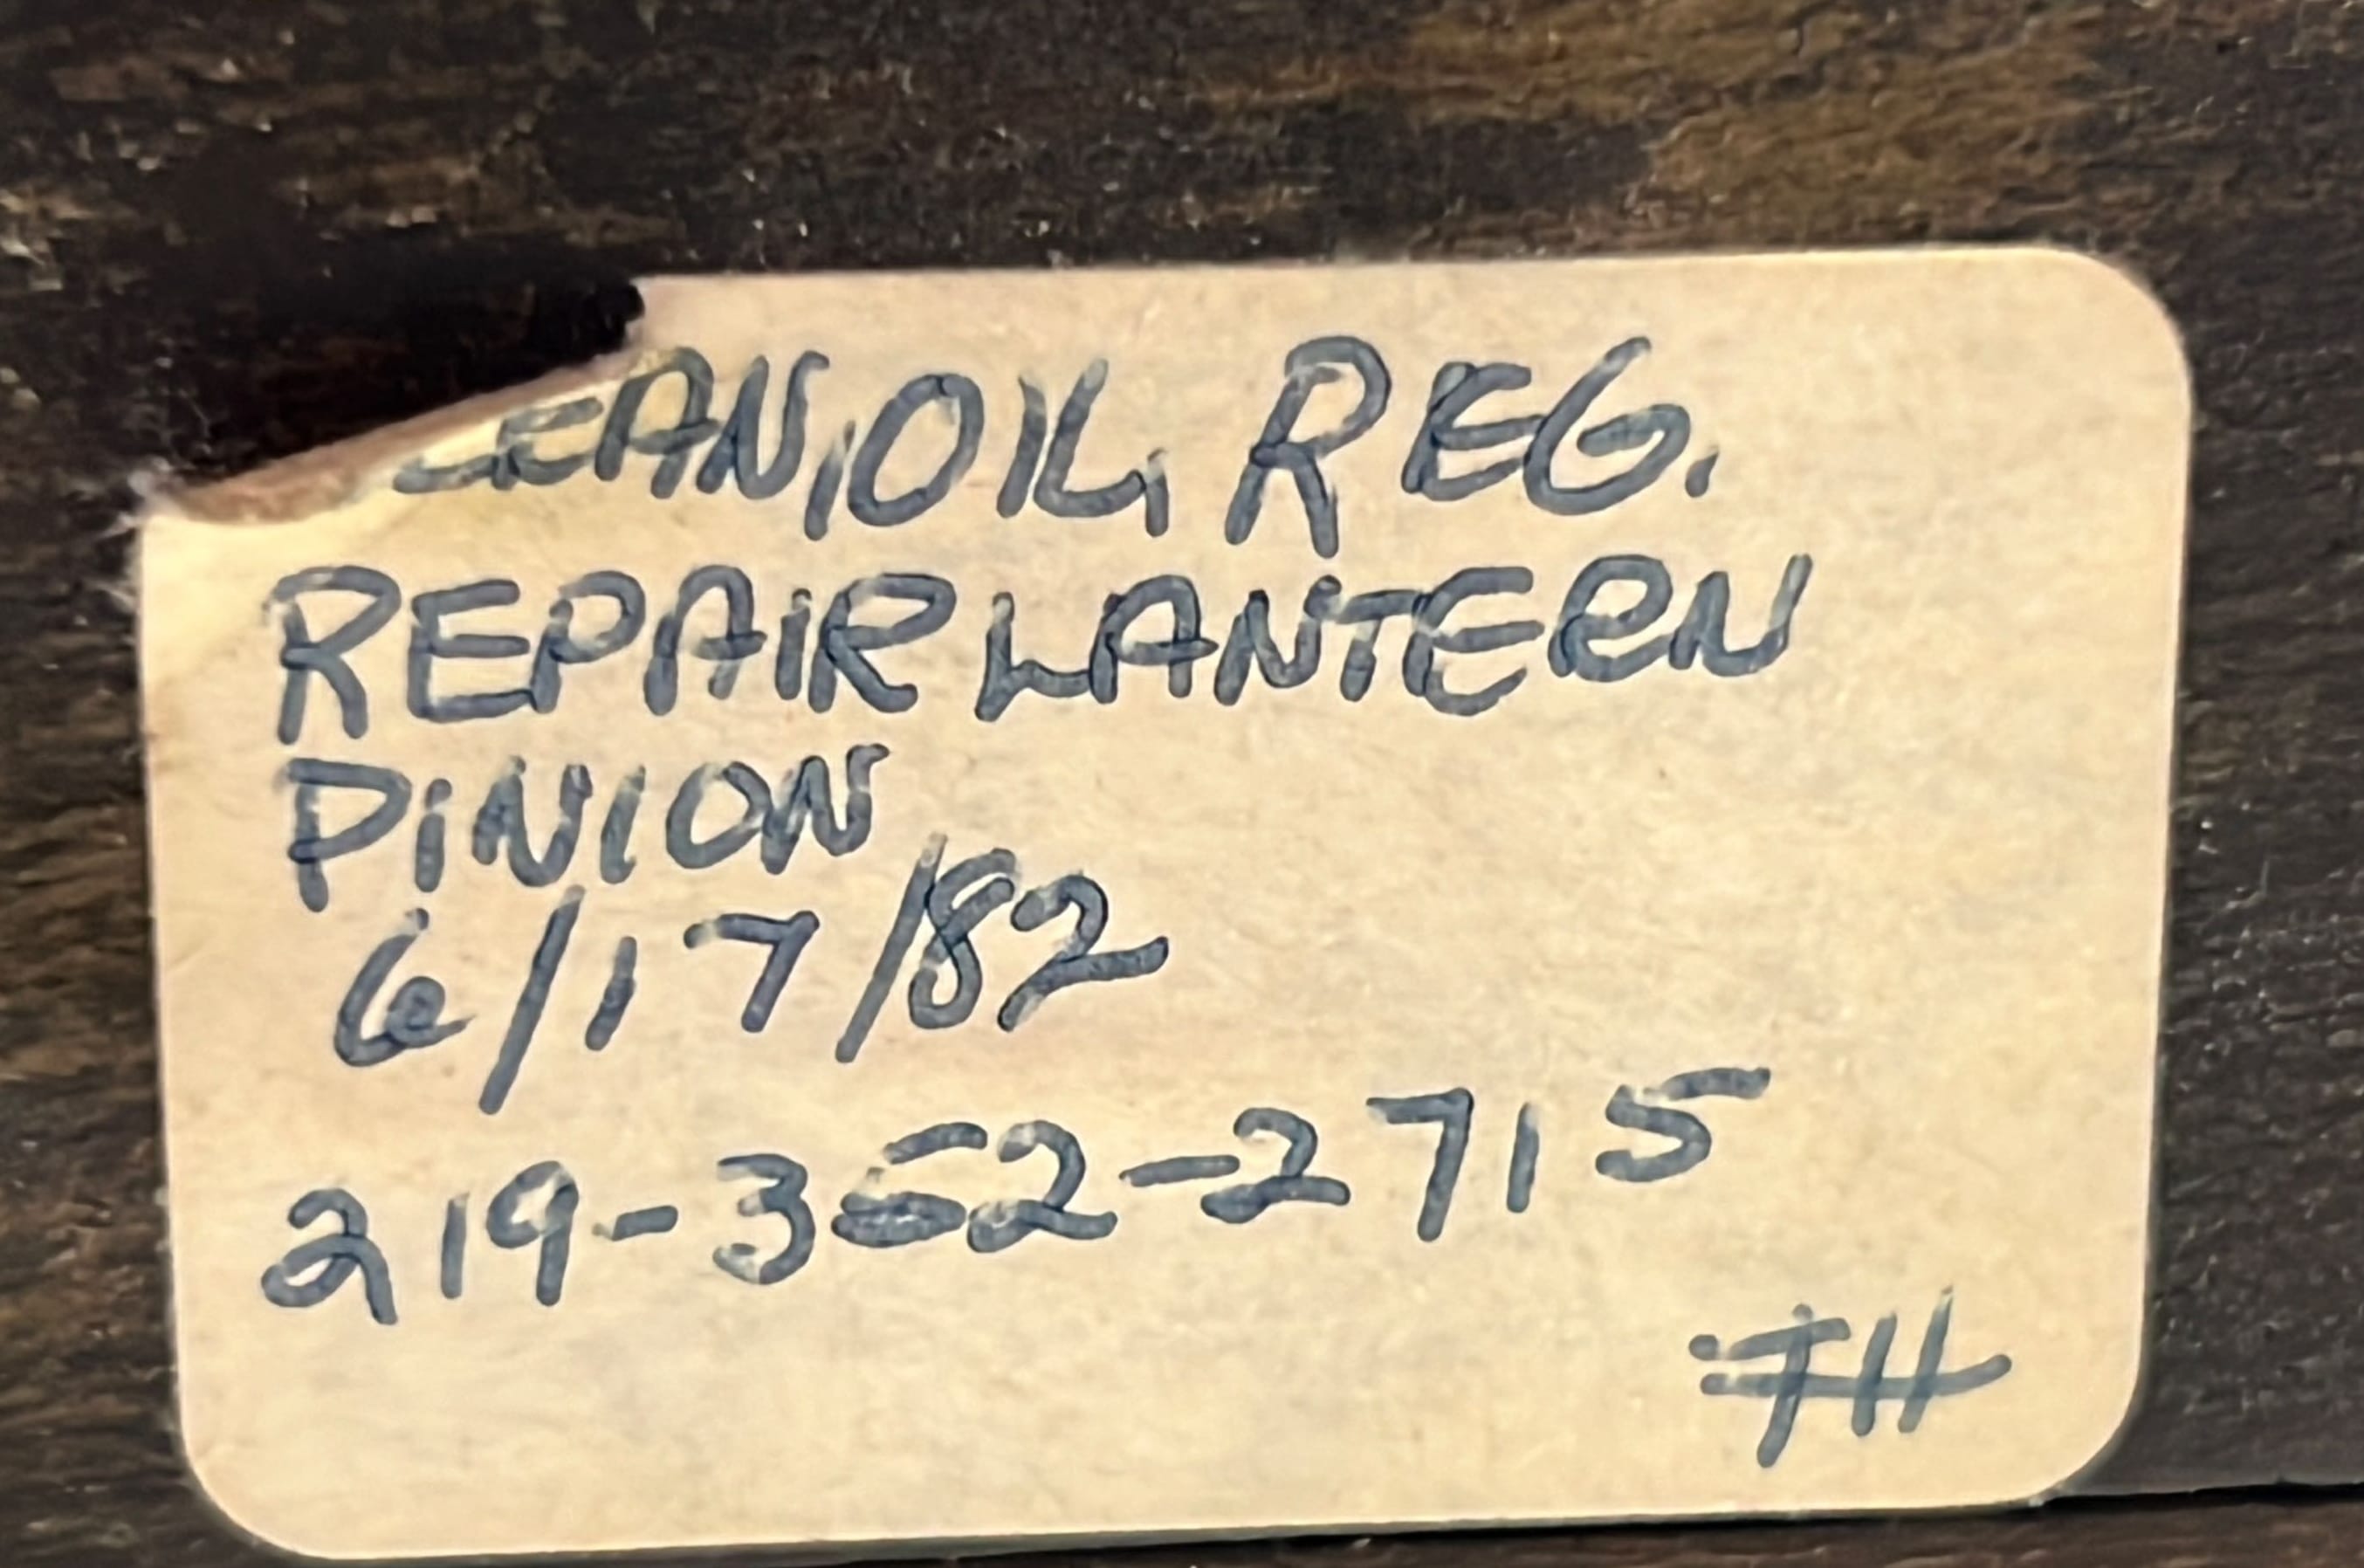 LEAN, OIL, REG.
REPAIR LANTERN
PINION
6/17/82
219-362-2715
FH